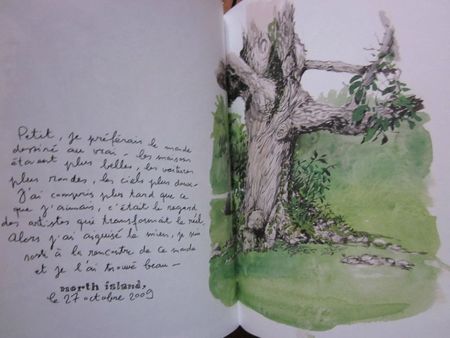 Petit, je préférais le monde
dessiné au vrai - les maisons
étaient plus belles, les voitures
plus rondes, les ciels plus doux -
J'ai compris plus tard que ce
que j'aimais, c'était le regard
des artistes qui transformait le réel.
Alors j'ai aiguisé le mien, je suis
resté à la rencontre de ce monde
et je l'ai trouvé beau -
north island,
le 27 octobre 2009